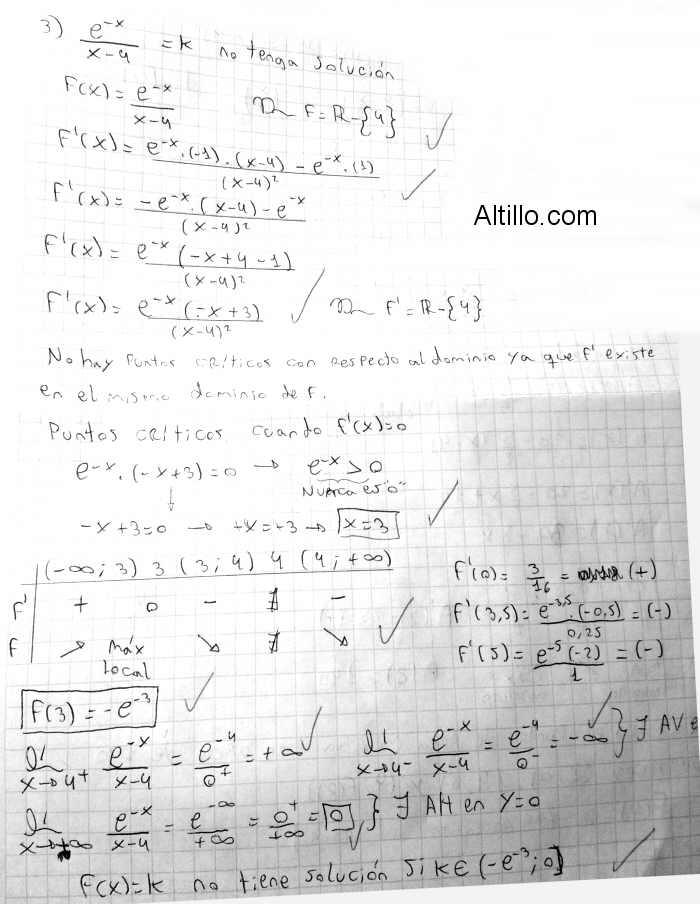 3) e^-x / x-4 = k no tenga solución
F(x) = e^-x / x-4 Dm F = R-{4}
F'(x) = e^-x.(-1).(x-4) - e^-x.(1) / (x-4)²
F'(x) = -e^-x.(x-4) - e^-x / (x-4)²
Altillo.com
F'(x) = e^-x (-x+4-1) / (x-4)²
F'(x) = e^-x (-x+3) / (x-4)² Dm F' = R-{4}
No hay Puntos críticos con respecto al dominio ya que f' existe
en el mismo dominio de F.
Puntos críticos cuando f'(x)=0
e^-x.(-x+3)=0 → e^-x > 0
Nunca es "0"
↓
-x+3=0 → +x=+3 → x=3
(-∞; 3) 3 (3; 4) 4 (4; +∞)
F' + 0 - ∄ -
F ↗ máx local ↘ ∄ ↘
F'(0) = 3/16 = (+)
F'(3,5) = e^-3,5.(-0,5) / 0,25 = (-)
F'(5) = e^-5 (-2) / 1 = (-)
F(3) = -e^-3
lim x→4+ e^-x / x-4 = e^-4 / 0+ = +∞ lim x→4- e^-x / x-4 = e^-4 / 0- = -∞ } ∃ AV
lim x→+∞ e^-x / x-4 = e^-∞ / +∞ = 0+ / +∞ = 0 } ∃ AH en y=0
F(x)=k no tiene solución si k∈(-e^-3; 0]